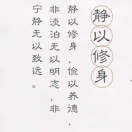 静以修身
静以修身，俭以养德，
非淡泊无以明志，非
宁静无以致远。